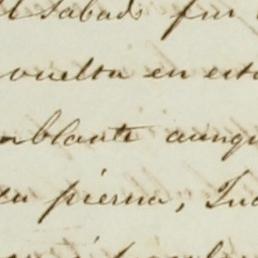 El Sabado fui
vuelta en est
blante aunq
su pierna, Ind